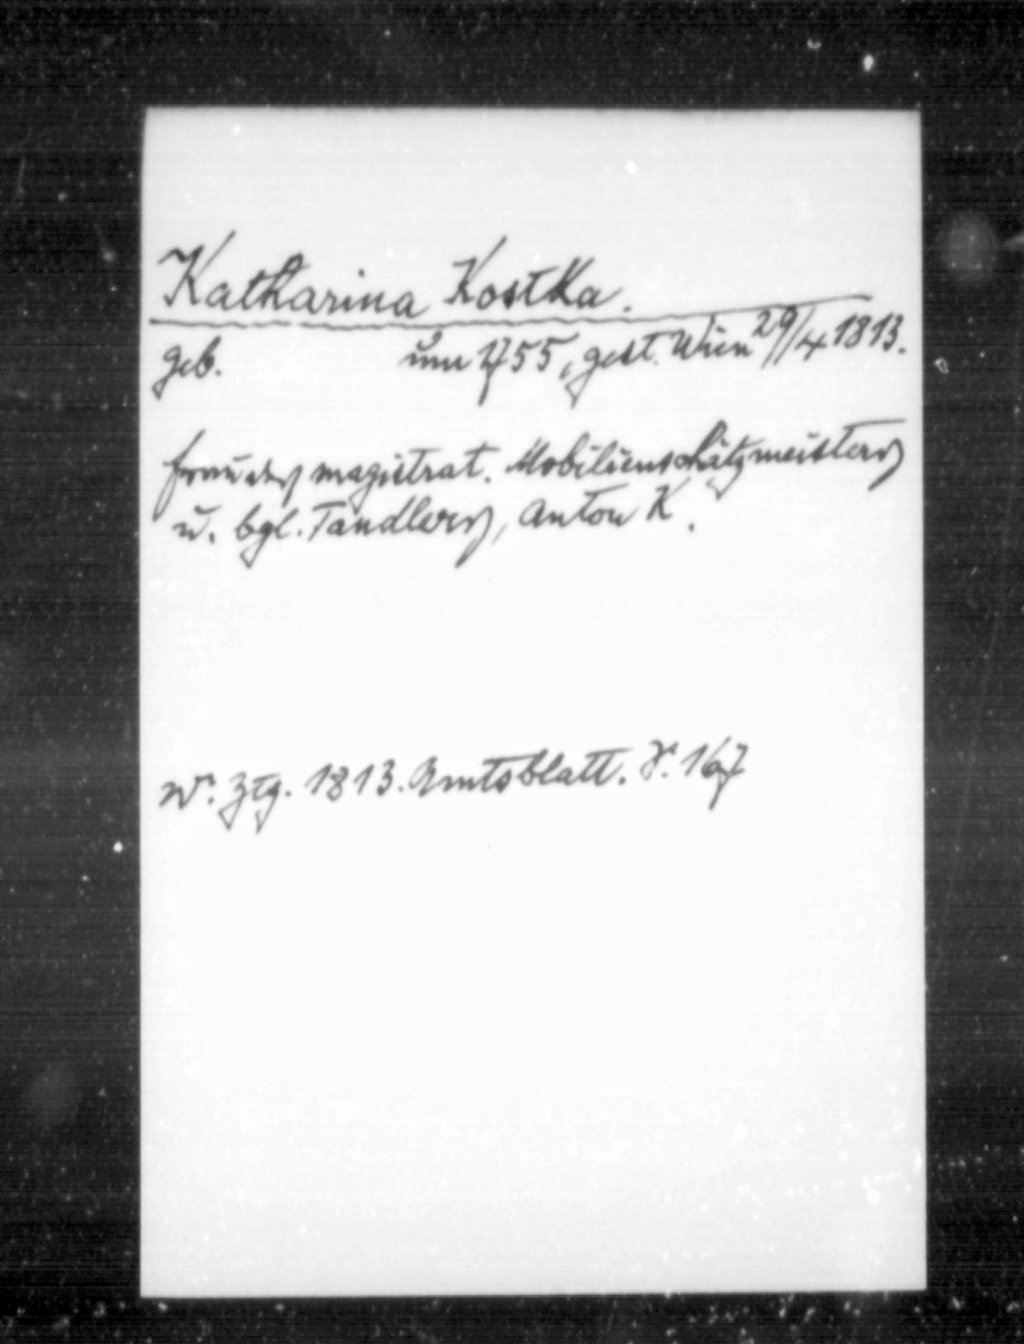 Katharina Kostka.
geb. um 1755, gest. Wien 29/4 1813.
Frau des magistrat. Mobilienschätzmeisters
u. bgl. Tandlers, Anton K.
W. Ztg. 1813. Amtsblatt. S. 167